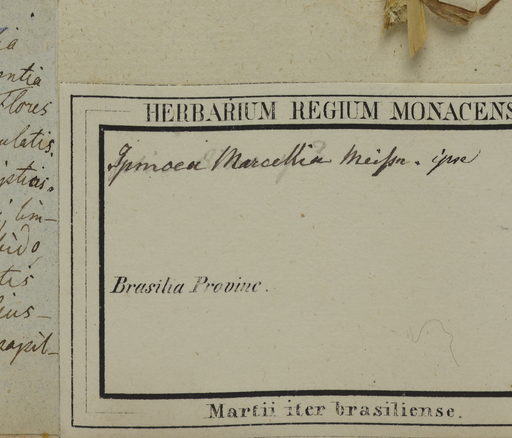 ia
entia
Flores
ulatis.
ptias.
lim-
bido,
tis
ius-
papil-
HERBARIUM REGIUM MONACENS
Ipomoea Marcellia Meissn. ipse
Brasilia Provinc.
Martii iter brasiliense.